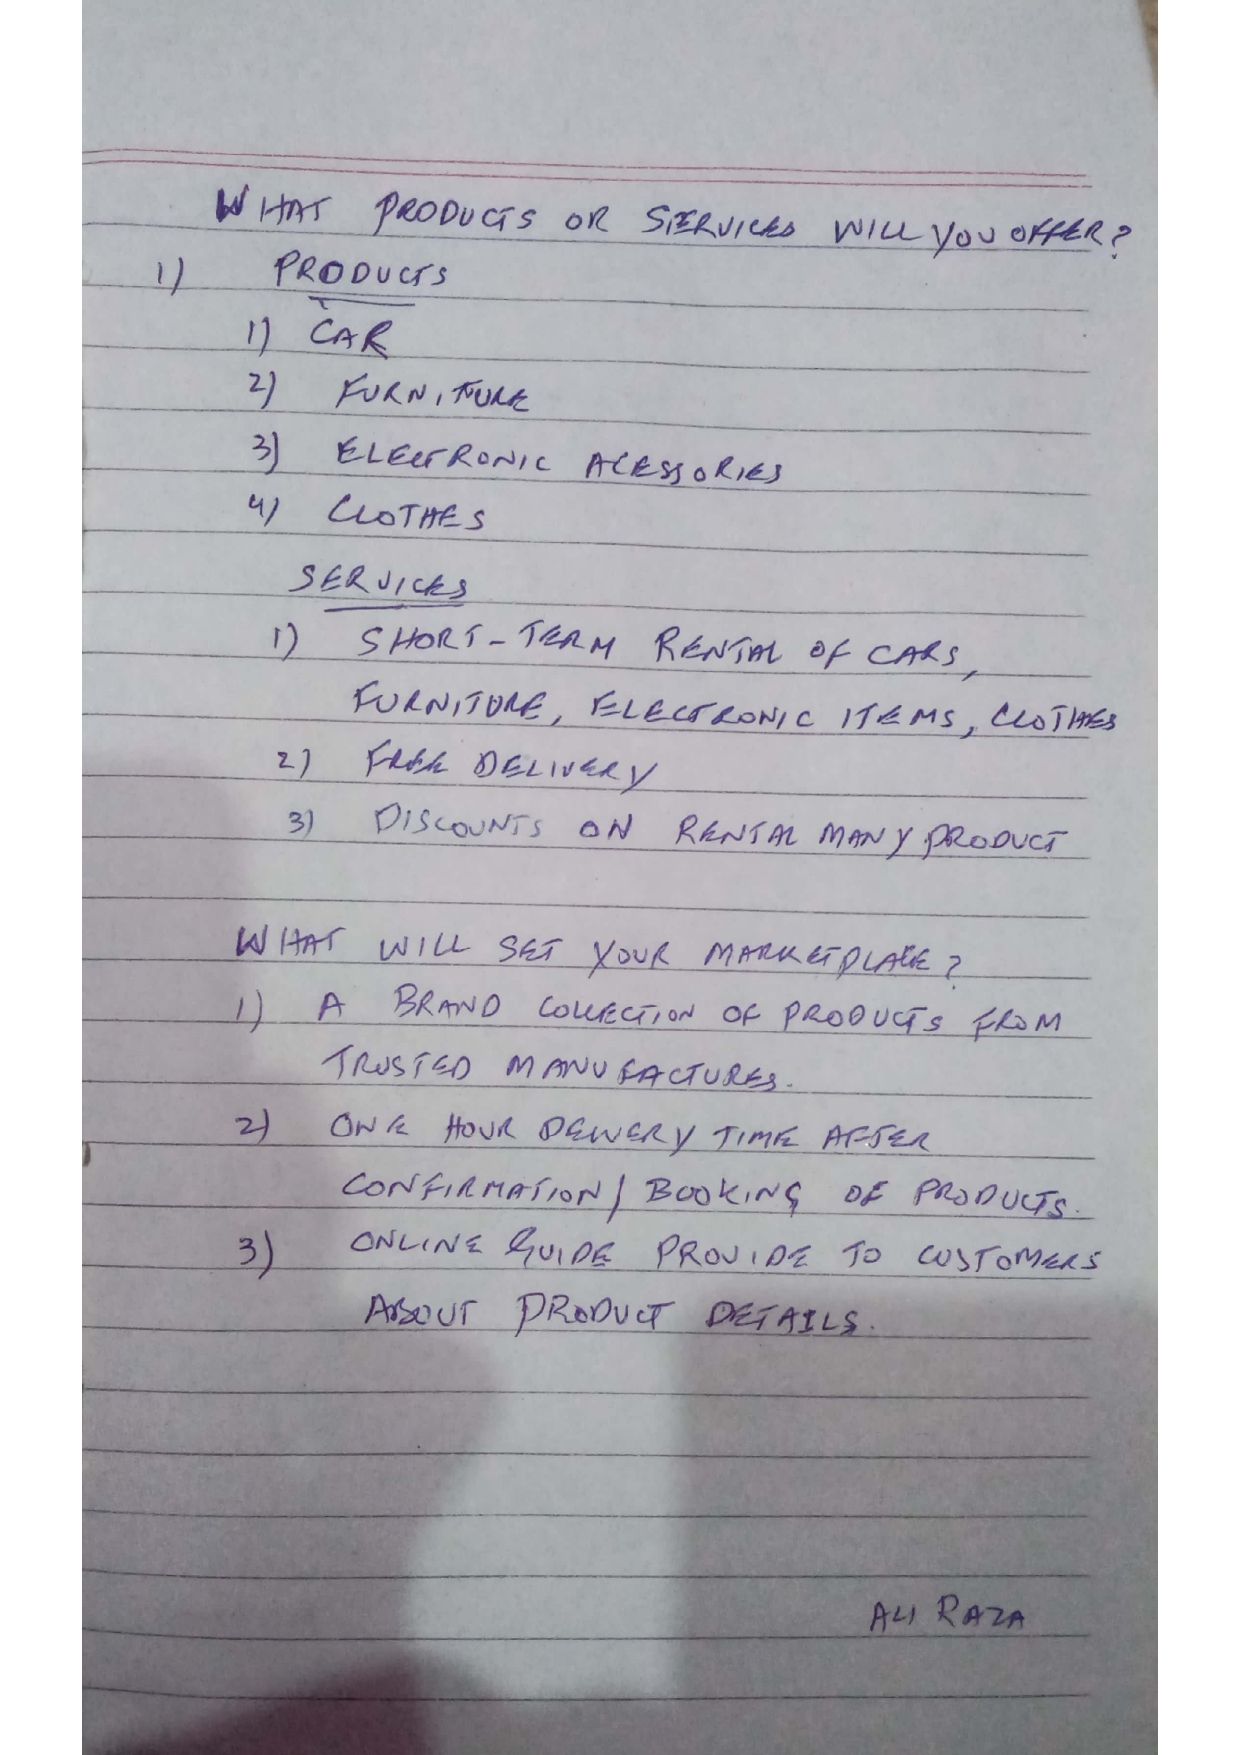 WHAT PRODUCTS OR SERVICES WILL YOU OFFER?
1) PRODUCTS
1) CAR
2) FURNITURE
3) ELECTRONIC ACESSORIES
4) CLOTHES
SERVICES
1) SHORT-TERM RENTAL OF CARS,
FURNITURE, ELECTRONIC ITEMS, CLOTHES
2) FREE DELIVERY
3) DISCOUNTS ON RENTAL MANY PRODUCT
WHAT WILL SET YOUR MARKETPLACE?
1) A BRAND COLLECTION OF PRODUCTS FROM
TRUSTED MANUFACTURES.
2) ONE HOUR DELIVERY TIME AFTER
CONFIRMATION/ BOOKING OF PRODUCTS.
3) ONLINE GUIDE PROVIDE TO CUSTOMERS
ABOUT PRODUCT DETAILS.
ALI RAZA